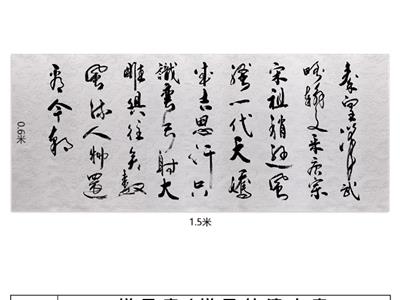 秦皇汉武
略输文采唐宗
宋祖稍逊风
骚一代天骄
成吉思汗只
識弯弓射大
雕俱往矣数
风流人物還
看今朝
0.6米
1.5米